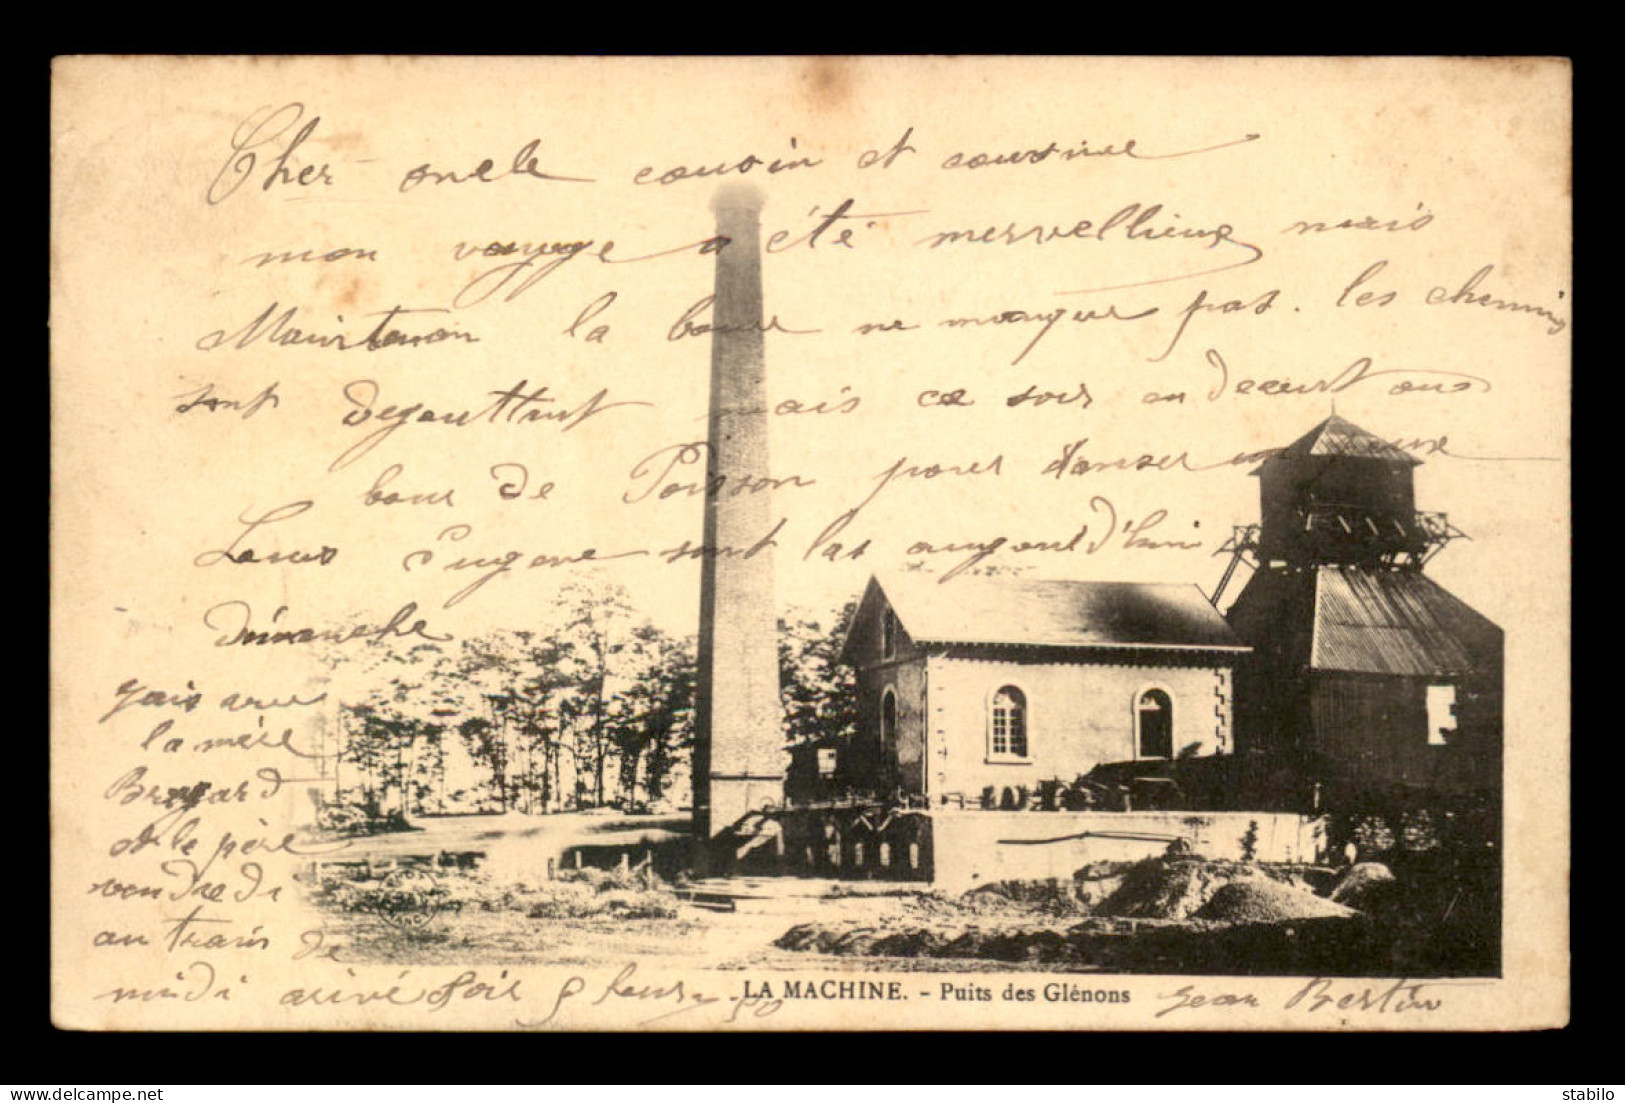 Cher oncle cousin et cousine
mon voyage a été mervellieux mais
Maintenan la boue ne manque pas. les chemins
sont degouttant mais ce soir on decent au
bour de Poisson pour danser une
Louis Eugene sont las aujourd'huii
Dimanche
jais
la mère
Brégard
et le père
vendredi
au train de
midi arivé soir 9 heur 50
LA MACHINE. - Puits des Glénons
Jean Bertin
stabilo